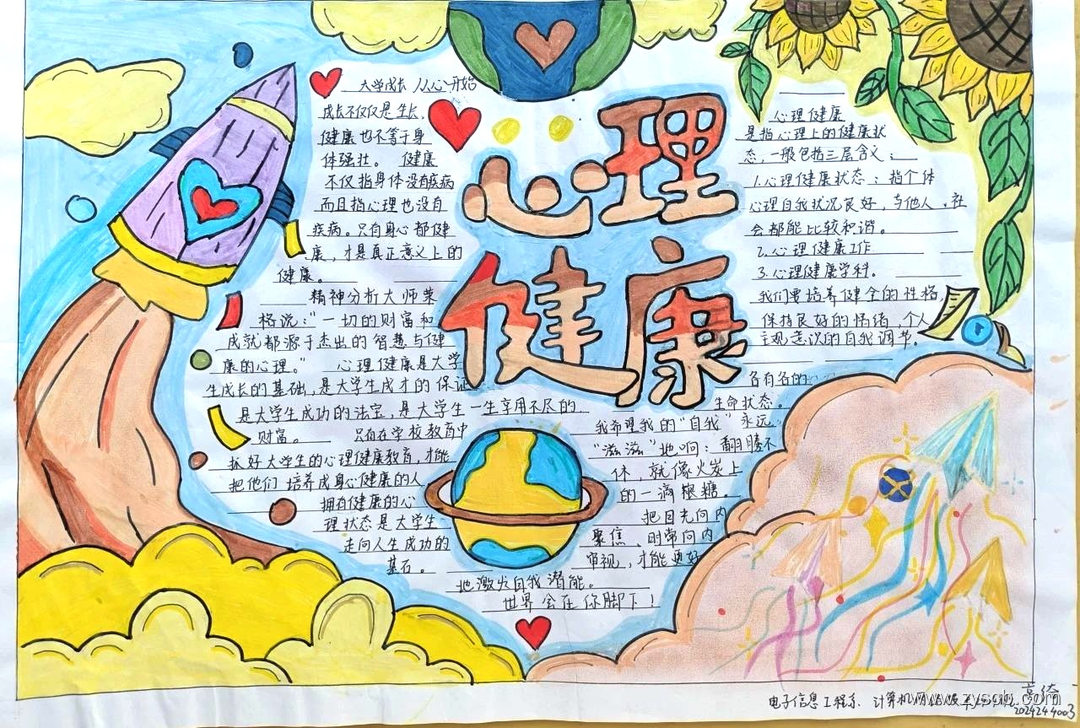 心理
健康
大学成长 从心开始
成长不仅仅是生长,
健康也不等于身
体强壮。 健康
不仅指身体没有疾病
而且指心理也没有
疾病。只有身心都健
康,才是真正意义上的
健康。
精神分析大师荣
格说:"一切的财富和
成就都源于杰出的智慧与健
康的心理。" 心理健康是大学
生成长的基础,是大学生成才的保证
是大学生成功的法宝,是大学生一生享用不尽的
财富。 只有在学校教育中
抓好大学生的心理健康教育,才能
把他们培养成身心健康的人
拥有健康的心
理状态是大学生
走向人生成功的
基石。
心理健康
是指心理上的健康状
态,一般包括三层含义:
1.心理健康状态:指个体
心理自我状况良好,与他人、社
会都能比较和谐。
2.心理健康工作
3.心理健康学科。
我们要培养健全的性格,
保持良好的情绪,个人
主观意识的自我调节。
各有各的
生命状态。
我希望我的"自我"永远
"滋滋"地响:翻腾不
休,就像火炭上
的一滴糖。
把目光向内
聚焦、时常向内
审视,才能更好
地激发自我潜能。
世界会在你脚下!
电子信息工程系 计算机网络
2024244003